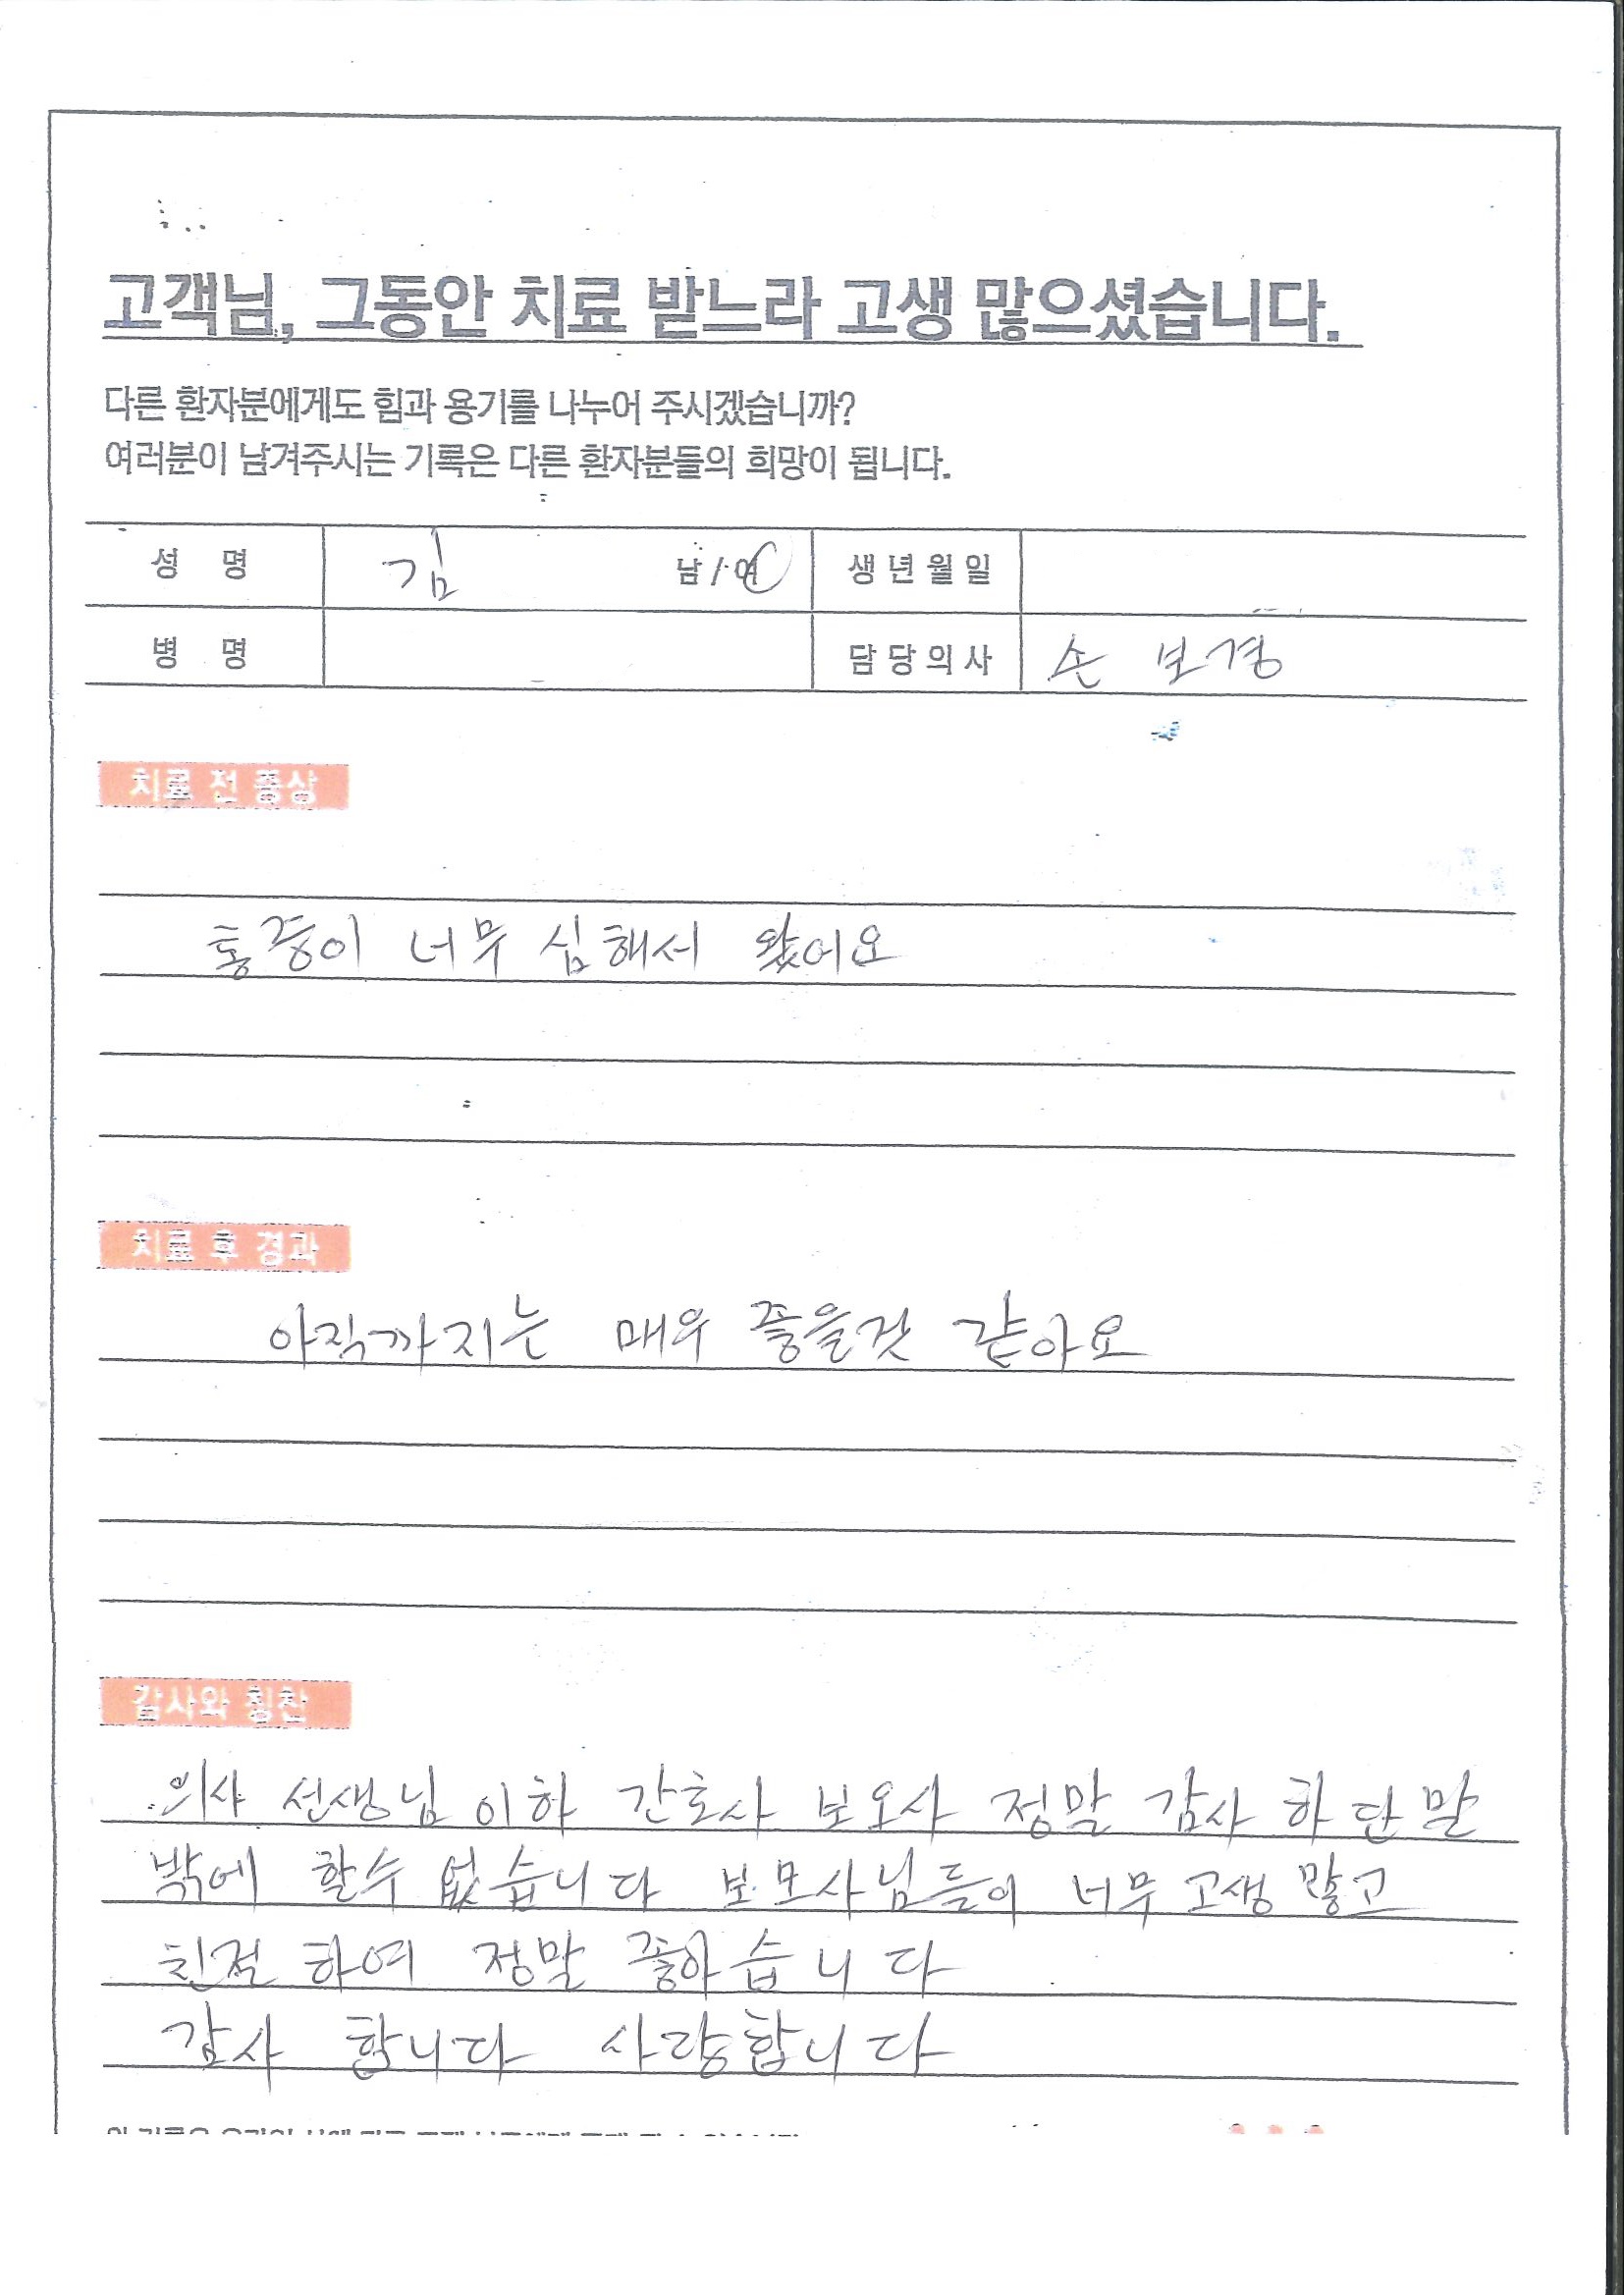 고객님, 그동안 치료 받느라 고생 많으셨습니다.
다른 환자분에게도 힘과 용기를 나누어 주시겠습니까?
여러분이 남겨주시는 기록은 다른 환자분들의 희망이 됩니다.
성 명 김 남 / 여 생년월일
병 명 담당의사 손 보경
치료 전 증상
통증이 너무 심해서 왔어요
치료 후 경과
아직까지는 매우 좋을것 같아요
감사와 칭찬
의사 선생님 이하 간호사 보오사 정말 감사 하단말
밖에 할수 없습니다 보모사님들이 너무 고생 많고
친절 하여 정말 좋아습니다
감사 합니다 사랑합니다